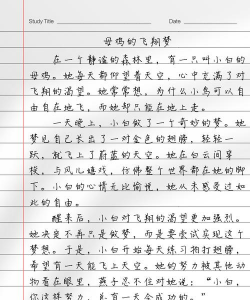 Study Title
Date
母鸡的飞翔梦
在一个静谧的森林里，有一只叫小白的
母鸡。她每天都仰望着天空，心中充满了对
飞翔的渴望。她常常想，为什么小鸟可以自
由自在地飞，而她却只能在地上走。
一天晚上，小白做了一个奇妙的梦。她
梦见自己长出了一对金色的翅膀，轻轻一
跃，就飞上了蔚蓝的天空。她在白云间穿
梭，与风儿嬉戏，仿佛整个世界都在她的脚
下。小白的心情无比愉悦，她从未感受过如
此的自由。
醒来后，小白对飞翔的渴望更加强烈。
她决定不再只是做梦，而是要尝试实现这个
梦想。于是，小白开始每天练习拍打翅膀，
希望有一天能飞上天空。她的努力被其他动
物看在眼里，燕子忍不住对她说：“小白，
你这样努力，总有一天会成功的。”